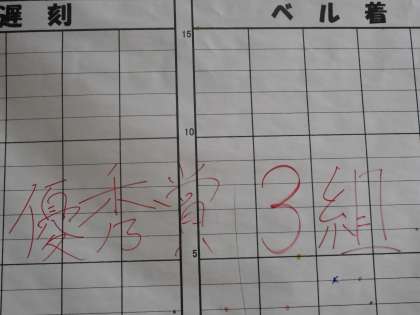 遅刻 ベル着
15
10
優秀賞 3組
5